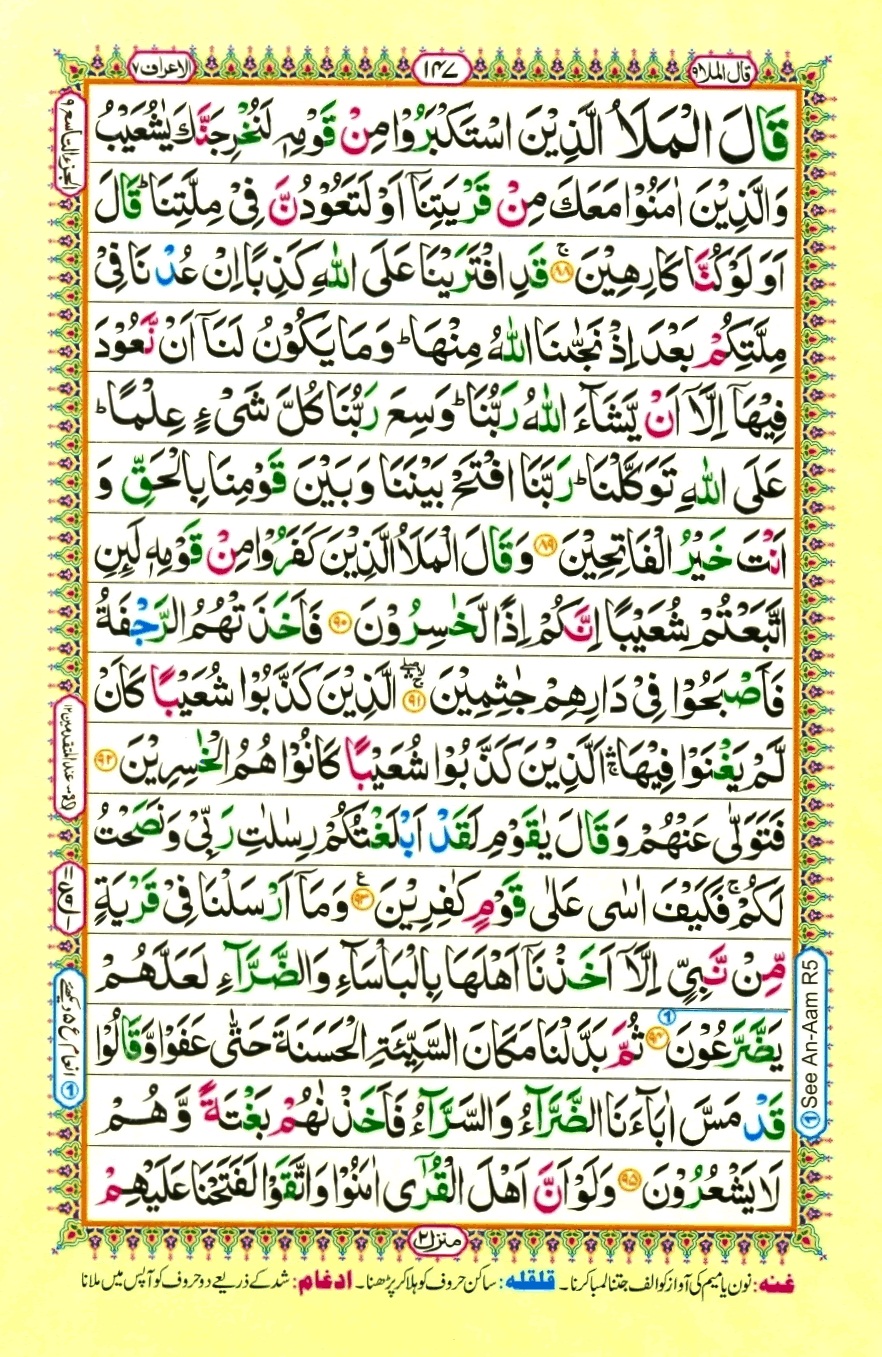 قال الملا ٩
١٤٧
الاعراف ٧
قَالَ الْمَلَاُ الَّذِیْنَ اسْتَكْبَرُوْا مِنْ قَوْمِهٖ لَنُخْرِجَنَّكَ یٰشُعَیْبُ
وَالَّذِیْنَ اٰمَنُوْا مَعَكَ مِنْ قَرْیَتِنَاۤ اَوْ لَتَعُوْدُنَّ فِیْ مِلَّتِنَا ؕ قَالَ
اَوَلَوْ كُنَّا كَارِهِیْنَ ۚ ﴿۸۸﴾ قَدِ افْتَرَیْنَا عَلَی اللّٰهِ كَذِبًا اِنْ عُدْنَا فِیْ
مِلَّتِكُمْ بَعْدَ اِذْ نَجّٰىنَا اللّٰهُ مِنْهَا ؕ وَمَا یَكُوْنُ لَنَاۤ اَنْ نَّعُوْدَ
فِیْهَاۤ اِلَّاۤ اَنْ یَّشَآءَ اللّٰهُ رَبُّنَا ؕ وَسِعَ رَبُّنَا كُلَّ شَیْءٍ عِلْمًا ؕ
عَلَی اللّٰهِ تَوَكَّلْنَا ؕ رَبَّنَا افْتَحْ بَیْنَنَا وَبَیْنَ قَوْمِنَا بِالْحَقِّ وَ
اَنْتَ خَیْرُ الْفَاتِحِیْنَ ﴿۸۹﴾ وَقَالَ الْمَلَاُ الَّذِیْنَ كَفَرُوْا مِنْ قَوْمِهٖ لَىِٕنِ
اتَّبَعْتُمْ شُعَیْبًا اِنَّكُمْ اِذًا لَّخٰسِرُوْنَ ﴿۹۰﴾ فَاَخَذَتْهُمُ الرَّجْفَةُ
فَاَصْبَحُوْا فِیْ دَارِهِمْ جٰثِمِیْنَ ﴿۹۱﴾ الَّذِیْنَ كَذَّبُوْا شُعَیْبًا كَاَنْ
لَّمْ یَغْنَوْا فِیْهَا ۛۚ اَلَّذِیْنَ كَذَّبُوْا شُعَیْبًا كَانُوْا هُمُ الْخٰسِرِیْنَ ﴿۹۲﴾
فَتَوَلّٰی عَنْهُمْ وَقَالَ یٰقَوْمِ لَقَدْ اَبْلَغْتُكُمْ رِسٰلٰتِ رَبِّیْ وَنَصَحْتُ
لَكُمْ ۚ فَكَیْفَ اٰسٰی عَلٰی قَوْمٍ كٰفِرِیْنَ ﴿۹۳﴾ وَمَاۤ اَرْسَلْنَا فِیْ قَرْیَةٍ
مِّنْ نَّبِیٍّ اِلَّاۤ اَخَذْنَاۤ اَهْلَهَا بِالْبَاْسَآءِ وَالضَّرَّآءِ لَعَلَّهُمْ
یَضَّرَّعُوْنَ ﴿۹۴﴾ ثُمَّ بَدَّلْنَا مَكَانَ السَّیِّئَةِ الْحَسَنَةَ حَتّٰی عَفَوْا وَّقَالُوْا
قَدْ مَسَّ اٰبَآءَنَا الضَّرَّآءُ وَالسَّرَّآءُ فَاَخَذْنٰهُمْ بَغْتَةً وَّهُمْ
لَا یَشْعُرُوْنَ ﴿۹۵﴾ وَلَوْ اَنَّ اَهْلَ الْقُرٰۤی اٰمَنُوْا وَاتَّقَوْا لَفَتَحْنَا عَلَیْهِمْ
الجزء التاسع ٩
① انعام ع ۵ دیکھئے
① See An-Aam R5
منزل ٢
غنه: نون یا میم کی آواز کو الف جتنا لمبا کرنا۔ قلقله: ساکن حروف کو ہلا کر پڑھنا۔ ادغام: شد کے ذریعے دو حروف کو آپس میں ملانا